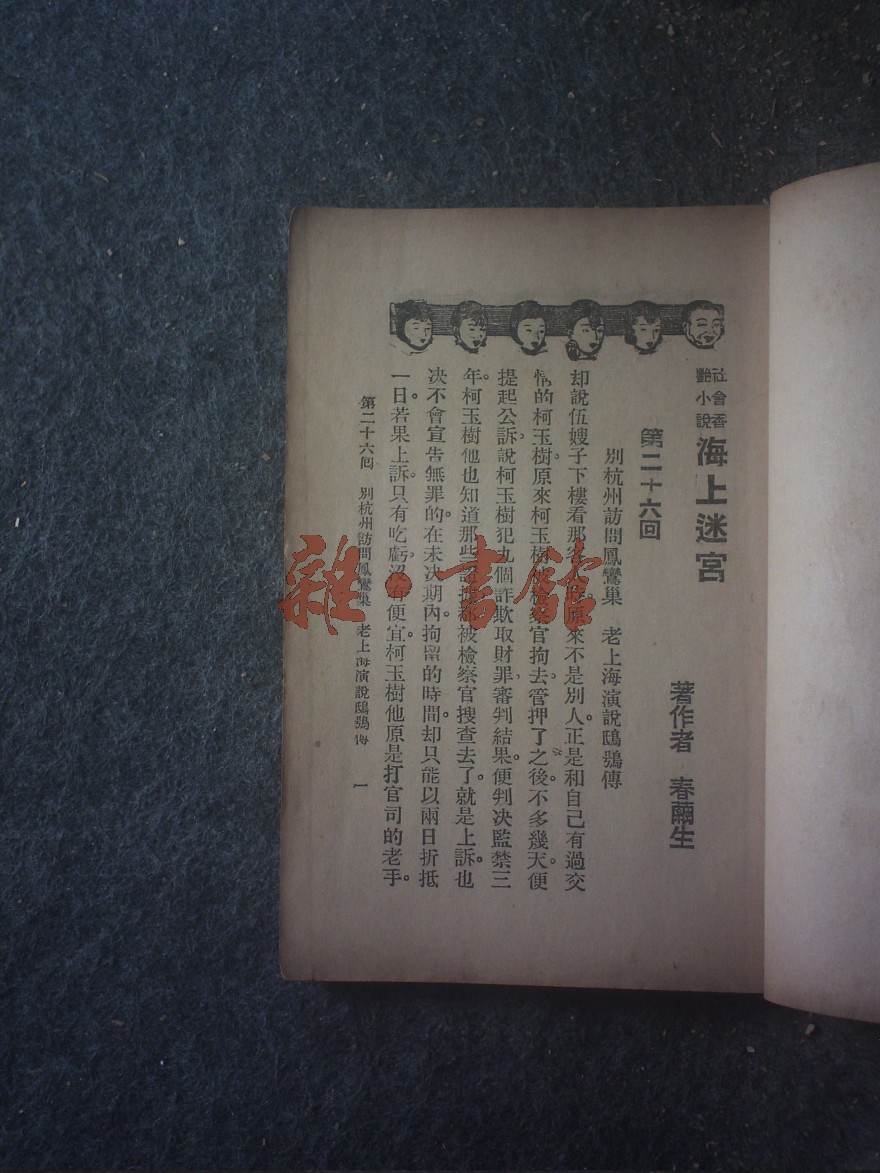 社會香艷小說 海上迷宮
著作者 春繭生
第二十六回
別杭州訪問鳳鸞巢 老上海演說鴟鴞傳
却說伍嫂子下樓看那客人時。原來不是別人。正是和自己有過交
情的柯玉樹。原來柯玉樹被檢察官拘去。管押了之後。不多幾天。便
提起公訴。說柯玉樹犯九個詐欺取財罪。審判結果。便判决監禁三
年。柯玉樹他也知道那些證據都被檢察官搜查去了。就是上訴。也
决不會宣告無罪的。在未决期內。拘留的時間。却只能以兩日折抵
一日。若果上訴。只有吃虧。沒有便宜。柯玉樹他原是打官司的老手。
第二十六回 別杭州訪問鳳鸞巢 老上海演說鴟鴞傳 一
雜·書館